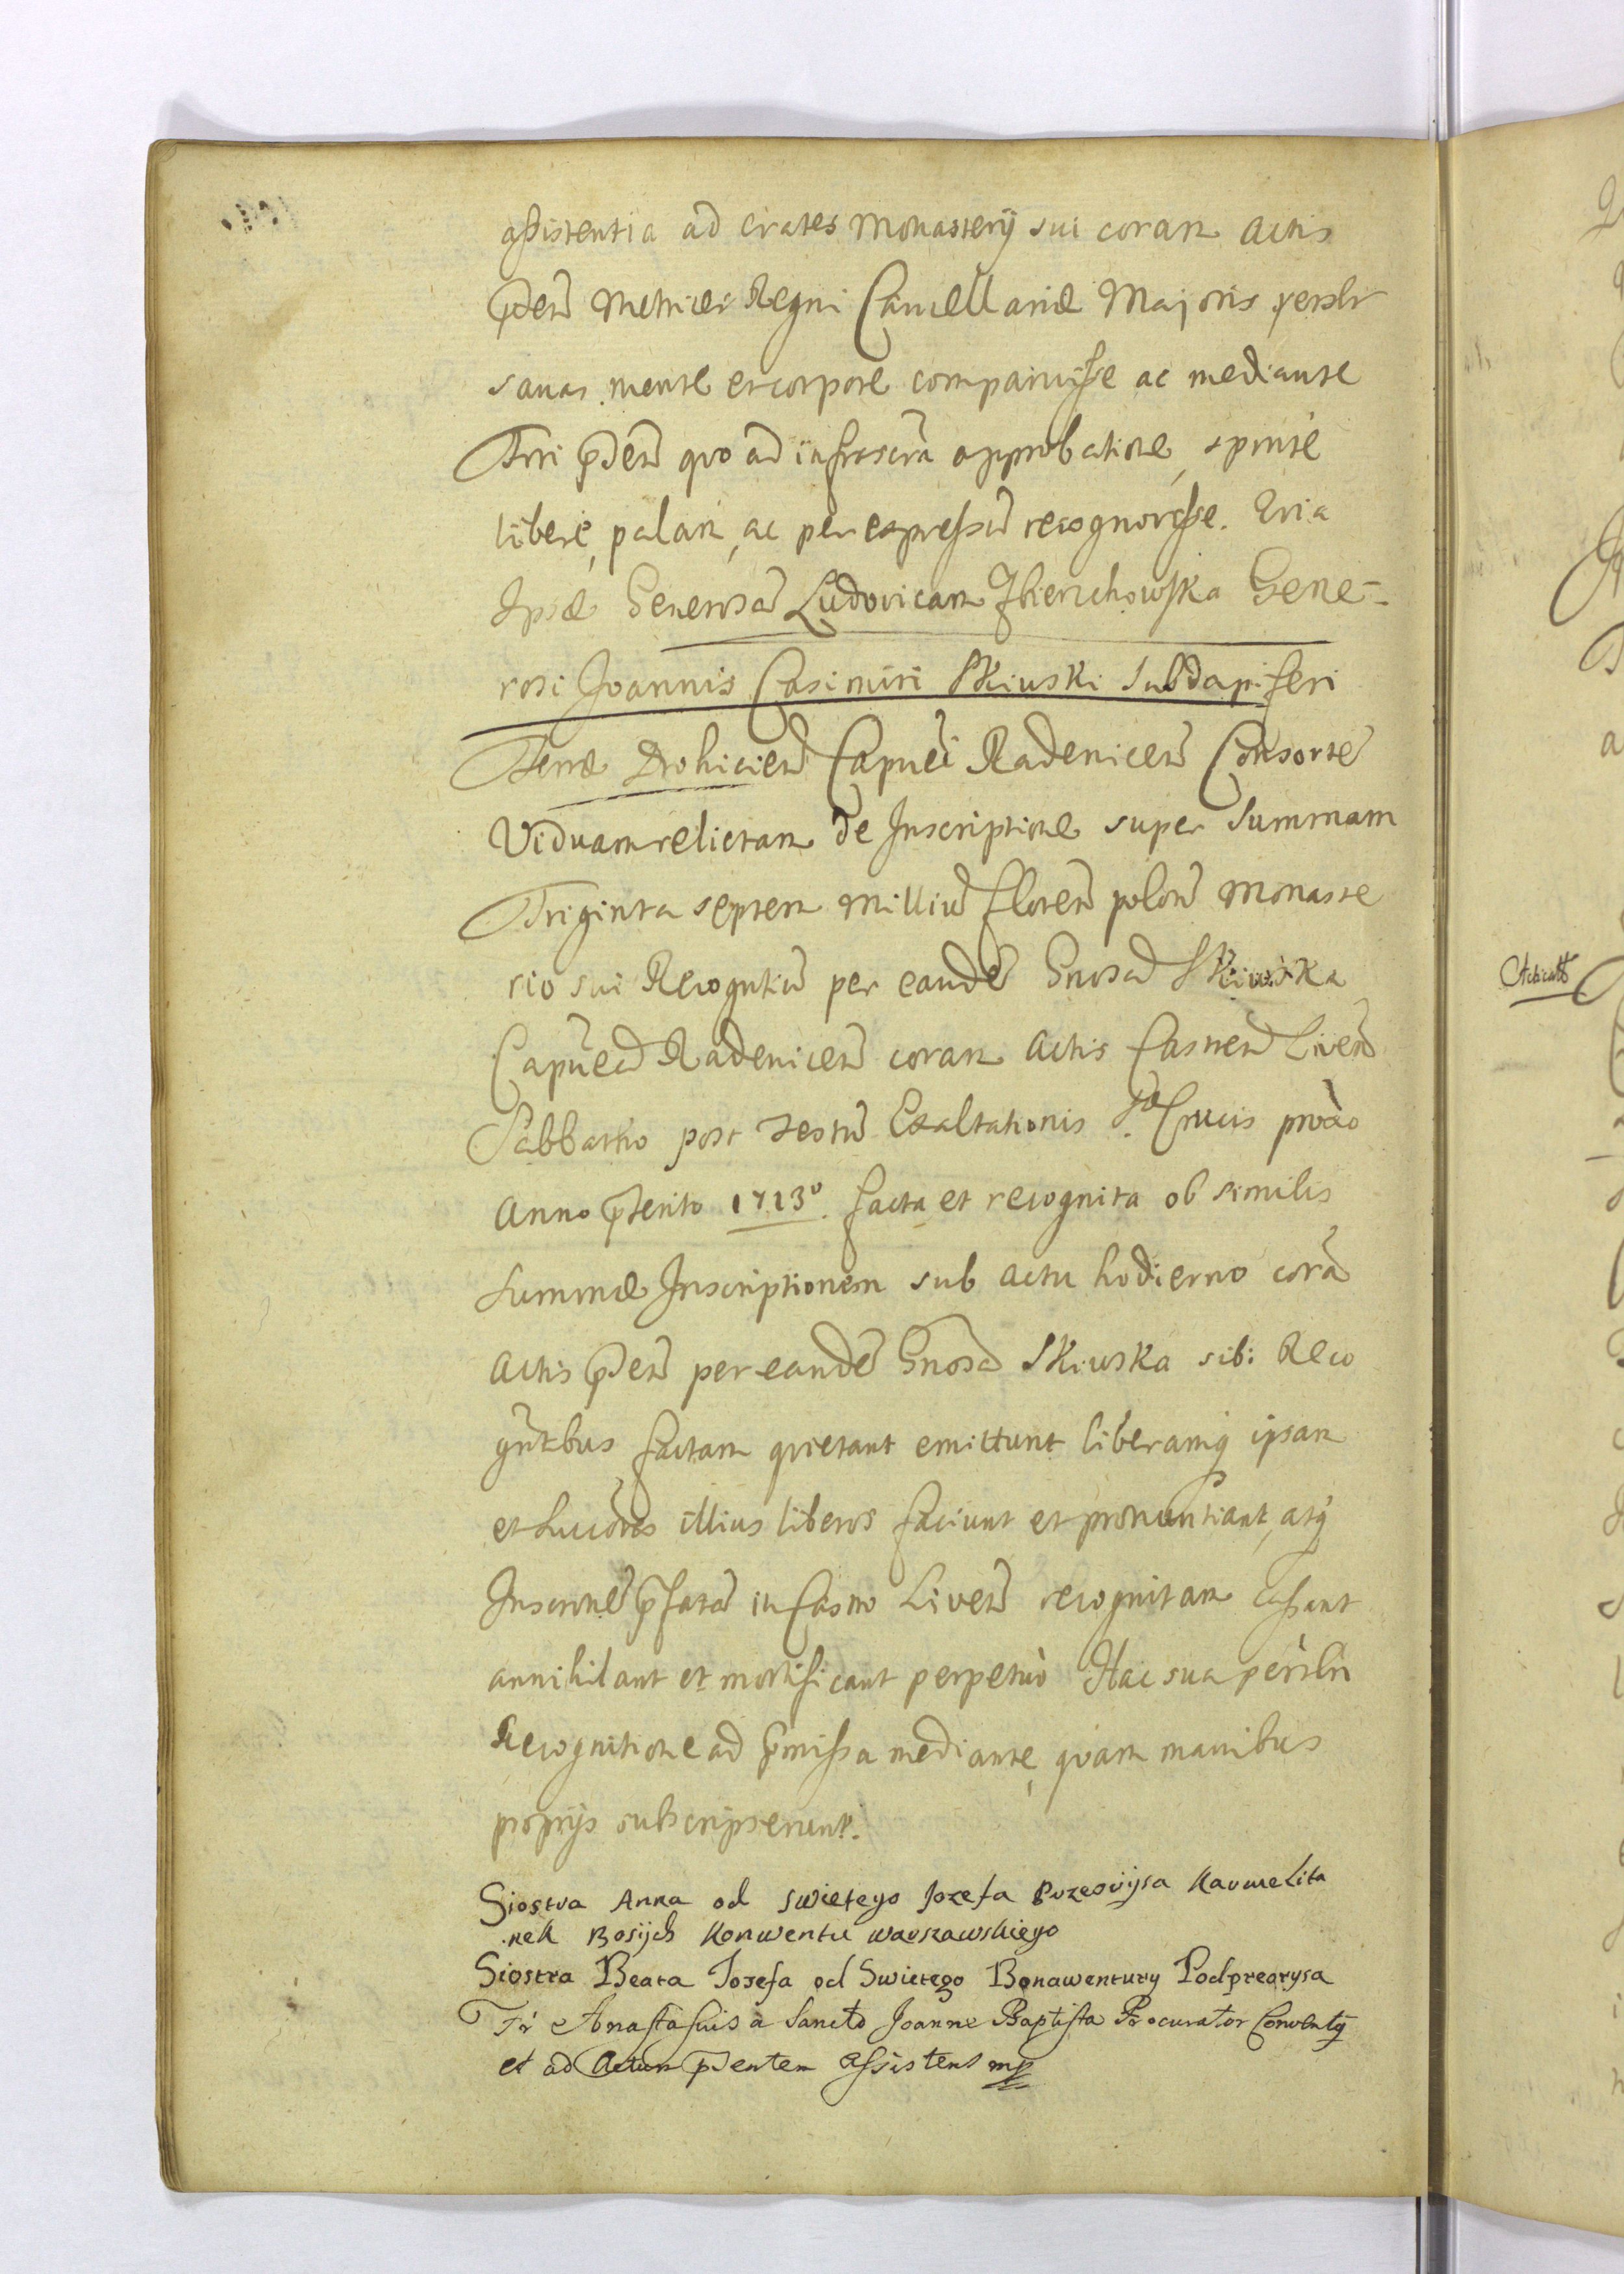 assistentia ad crates Monasterij sui coram Actis
p̃den̄ Metrices Regni Cancellariæ Majoris persl̄r
sanas mente et corpore comparuisse ac mediante
Frri p̃den̄ quo ad infrascrā approbatione, sponte
libere, palam, ac per expressū recognovisse. Quia
Ipsæ Generosā Ludovicam Zbierzchowska Gene-
rosi Joannis Casimiri Skiwski Subdapiferi
Terræ Drohicien̄ Capnēi Radenicen̄ Consorte
Viduam relictam de Inscriptione super Summam
Triginta septem Milliū floren̄ polon̄ Monaste
rio sui Recogntiū per eandē Gnosā Skiwska
Capnēā Radenicen̄ coram Actis Castren̄ Liven̄
Sabbatho post Festū Exaltationis S. Crucis proxo
Anno p̃terito 1713º. facta et recognita ob similis
Summæ Inscriptionem sub actu hodierno corā
Actis p̃den̄ per eandē Gnosā Skiwska sibi Reco
gn̄tbus factam quietant emittunt liberamq ipsam
et Succōres illius liberos faciunt et pronuntiant, atq
Inscrōnē p̃fatā in Castro Liven̄ recognitam cassant
annihilant et mortificant perpetuò Hac sua persl̄ri
Recognitione ad p̃missa mediante, quam manibus
proprijs subscripserunt.
Siostra Anna od swietego Jozefa Przeorijsa Karmelita
nek Bosijch Konwentu warszawskiego
Siostra Beata Josefa od Swietego Bonawentury Podpreorysa
Fr Anastasius à Sancto Joanne Baptista Procurator Conventq
et ad Actum p̃sentem Assistens mp